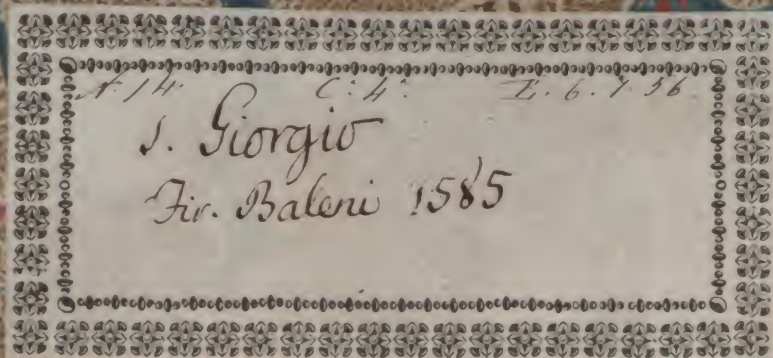 N. 14. C. 4. E. 6. 7. 36.
S. Giorgio
Fir. Baleni 1585